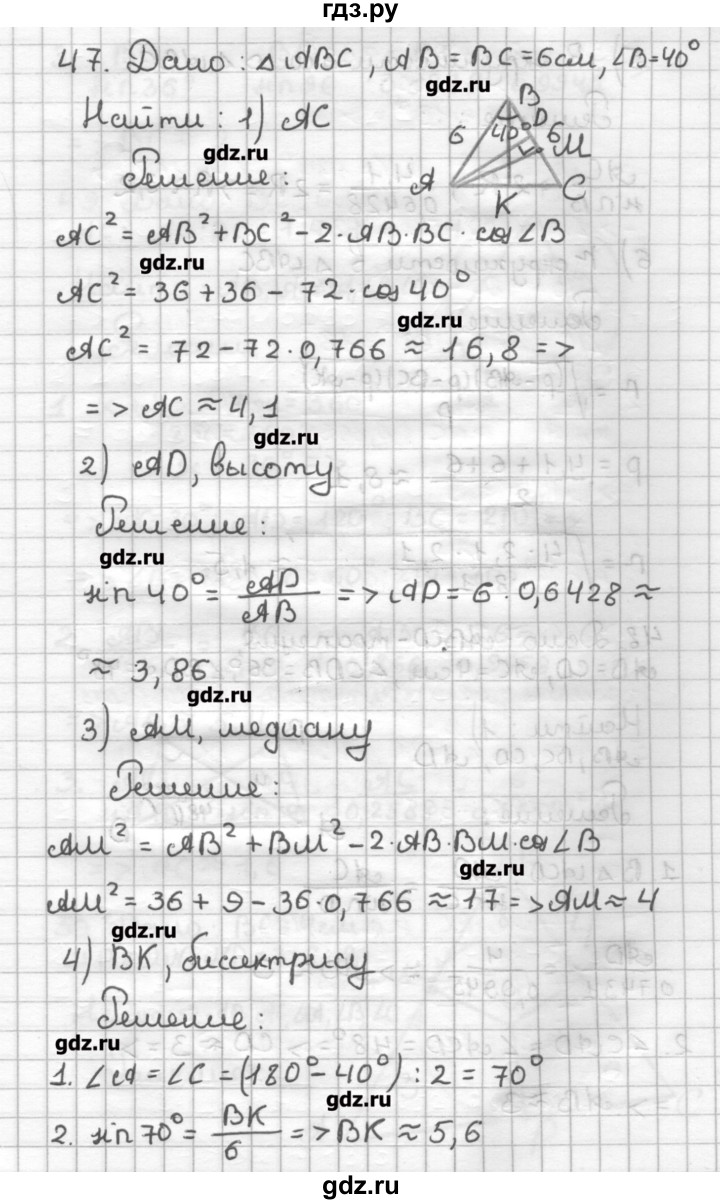 гдз.ру
47. Дано: △ABC, AB = BC = 6см, ∠B=40°
gdz.ru
Найти: 1) AC
B
40°
D
6
6
M
A
K
C
gdz.ru
Решение:
AC² = AB² + BC² - 2·AB·BC·cos∠B
gdz.ru
AC² = 36 + 36 - 72·cos 40°
gdz.ru
AC² = 72 - 72·0,766 ≈ 16,8 =>
=> AC ≈ 4,1
gdz.ru
2) AD, высоту
Решение:
gdz.ru
sin 40° = AD/AB => AD = 6·0,6428 ≈
≈ 3,86
gdz.ru
3) AM, медиану
Решение:
AM² = AB² + BM² - 2·AB·BM·cos∠B
gdz.ru
AM² = 36 + 9 - 36·0,766 ≈ 17 => AM ≈ 4
gdz.ru
4) BK, биссектрису
Решение:
gdz.ru
1. ∠A = ∠C = (180° - 40°) : 2 = 70°
gdz.ru
2. sin 70° = BK/6 => BK ≈ 5,6
gdz.ru